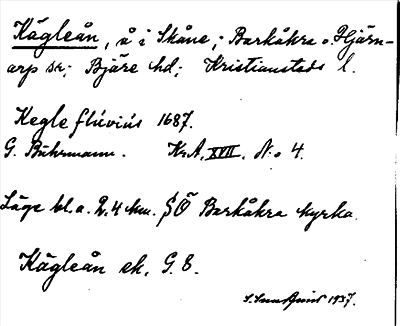 Kägleån, å i Skåne; Barkåkra o. Hjärn-
arp sn; Bjäre hd; Kristianstads l.
Kegle flúviús 1687.
G. Buhrmann. Kr.A. XVII. N:o 4.
Läge bl.a. 2,4 km. SÖ Barkåkra kyrka.
Kägleån ek. G. 8.
1937.